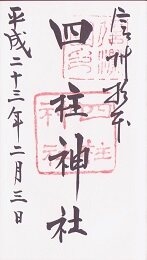 信州松本
四柱神社
平成二十三年二月三日